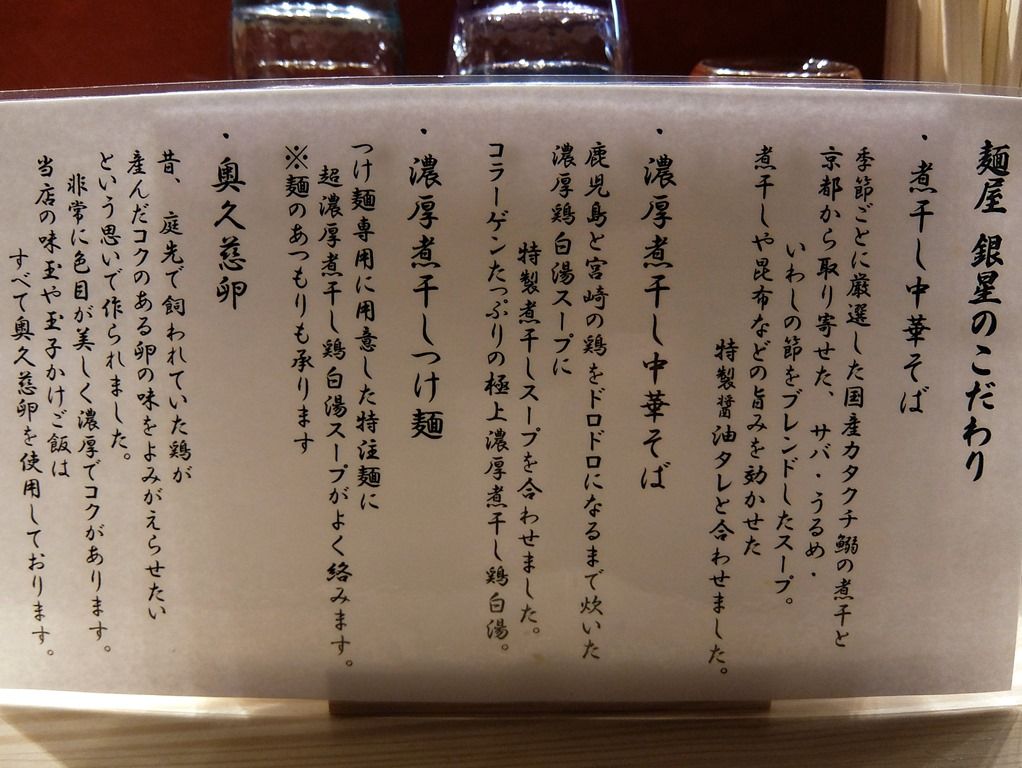 麺屋 銀星のこだわり
・煮干し中華そば
季節ごとに厳選した国産カタクチ鰯の煮干と
京都から取り寄せた、サバ・うるめ・
いわしの節をブレンドしたスープ。
煮干しや昆布などの旨みを効かせた
特製醤油タレと合わせました。
・濃厚煮干し中華そば
鹿児島と宮崎の鶏をドロドロになるまで炊いた
濃厚鶏白湯スープに
特製煮干しスープを合わせました。
コラーゲンたっぷりの極上濃厚煮干し鶏白湯。
・濃厚煮干しつけ麺
つけ麺専用に用意した特注麺に
超濃厚煮干し鶏白湯スープがよく絡みます。
※麺のあつもりも承ります
・奥久慈卵
昔、庭先で飼われていた鶏が
産んだコクのある卵の味をよみがえらせたい
という思いで作られました。
非常に色目が美しく濃厚でコクがあります。
当店の味玉や玉子かけご飯は
すべて奥久慈卵を使用しております。